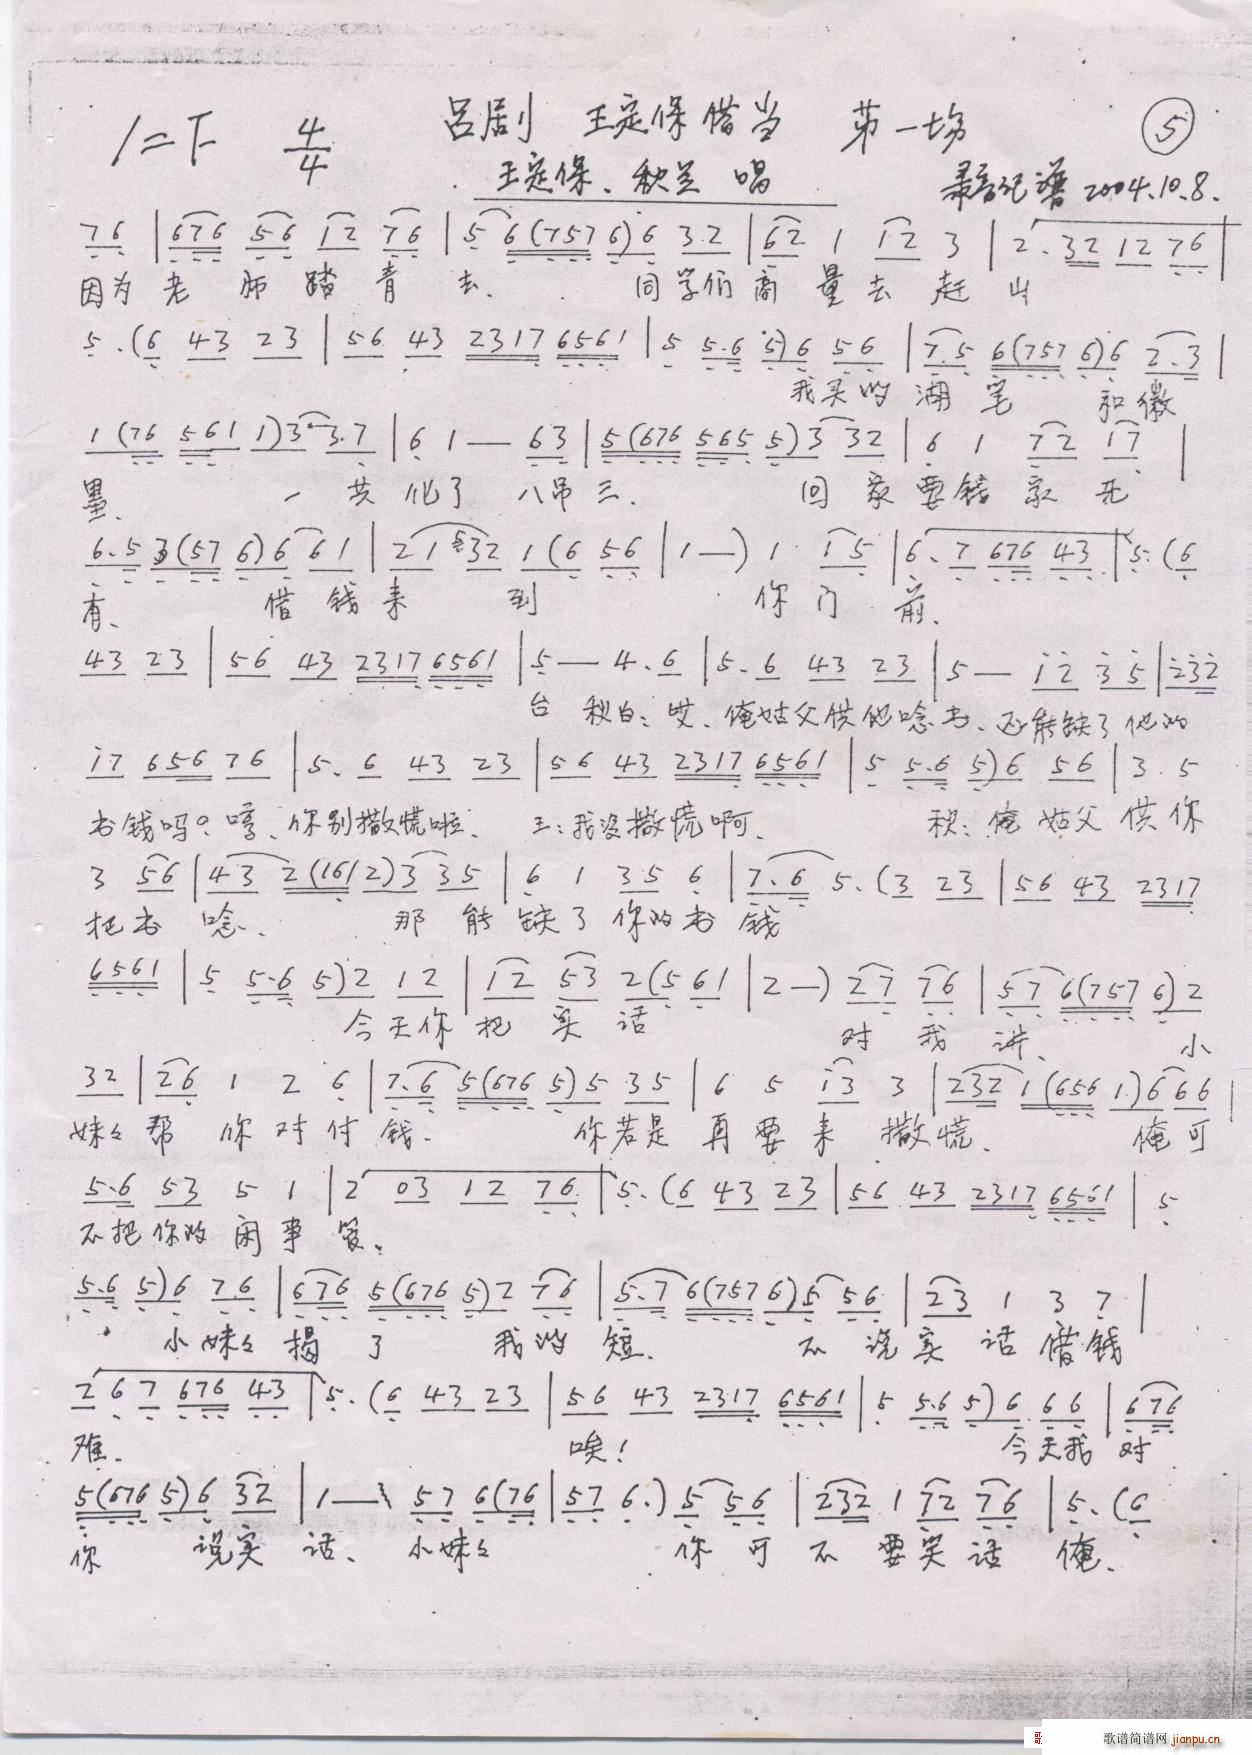 1=F 4/4 吕剧 王定保借当 第一场 ⑤
王定保、秋兰 唱 录音记谱 2004.10.8.
76 | 676 56 12 76 | 5 6(7576)6 32 | 62 1 12 3 | 2.32 12 76 |
因为老师踏青去、 同学们商量去赶山
5.(6 43 23 | 56 43 2317 6561 | 5 5.6 5)6 56 | 7.5 6(757 6)6 2.3 |
我买的湖笔 和徽
1(76 561 1)3 3.7 | 6 1 — 63 | 5(676 565 5)3 32 | 6 1 72 17 |
墨、 一共化了八吊三、 回家要钱家无
6.5 3(57 6)6 61 | 21 32 1(6 56 | 1—) 1 15 | 6.7 676 43 | 5.(6
有、 借钱来到 你门前、
43 23 | 56 43 2317 6561 | 5 — 4.6 | 5.6 43 23 | 5 — 12 35 | 232
台 秋白:哎、俺姑父供他唸书、还能缺了他的
17 656 76 | 5.6 43 23 | 56 43 2317 6561 | 5 5.6 5)6 56 | 3.5
书钱吗?哼、你别撒慌啦、 王:我没撒慌啊、 秋:俺姑父供你
3 56 | 43 2(161 2)3 35 | 6 1 35 6 | 7.6 5.(3 23 | 56 43 2317
把书唸、 那能缺了你的书钱
6561 | 5 5.6 5)2 12 | 12 53 2(5 61 | 2—) 27 76 | 57 6(757 6)2
今天你把实话 对我讲、 小
32 | 26 1 2 6 | 7.6 5(676 5)5 35 | 6 5 13 3 | 232 1(656 1.)6 66 |
妹々帮你对付钱、 你若是再要来撒慌、 俺可
5.6 53 5 1 | 2 03 12 76 | 5.(6 43 23 | 56 43 2317 6561 | 5
不把你的闲事管、
5.6 5)6 7.6 | 676 5(676 5)2 76 | 5.7 6(757 6)5 56 | 23 1 3 7 |
小妹々揭了 我的短、 不说实话借钱
2 6 7 676 43 | 5.(6 43 23 | 56 43 2317 6561 | 5 5.6 5)6 66 | 676
难、 唉! 今天我对
5(676 5)6 32 | 1 — 57 6(76 | 57 6.) 5 56 | 232 1 72 76 | 5.(6
你 说实话、小妹々 你可不要笑话俺、
歌谱简谱网 jianpu.cn